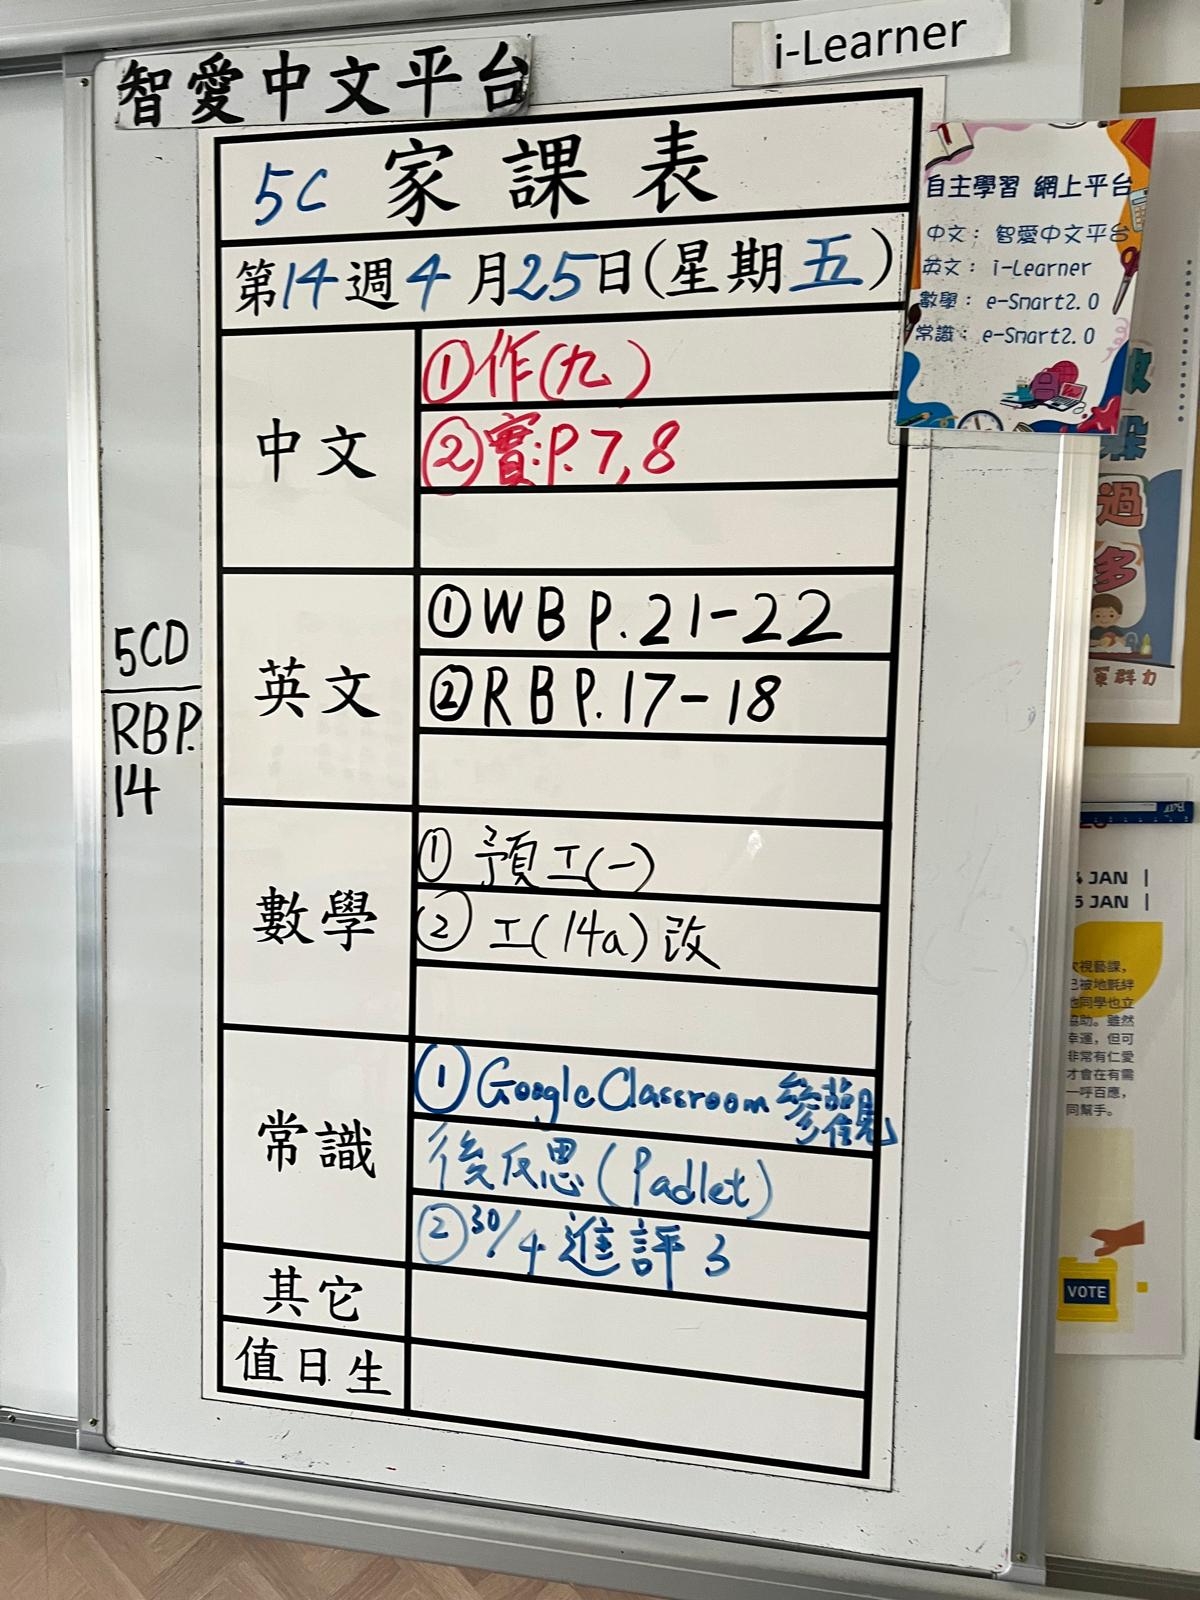 智愛中文平台
i-Learner
5C 家課表
第14週4月25日(星期五)
中文
①作(九)
②實:P.7,8
英文
①WB P.21-22
②RB P.17-18
數學
① 預工(一)
② 工(14a)改
常識
①Google Classroom 參觀
後反思(Padlet)
②30/4 進評3
其它
值日生
5CD
RBP.
14
自主學習 網上平台
中文： 智愛中文平台
英文： i-Learner
數學： e-Smart2.0
常識： e-Smart2.0
過
多
群力
JAN |
5 JAN |
次視藝課，
已被地氈絆
他同學也立
協助。雖然
幸運，但可
非常有仁愛
才會在有需
一呼百應，
同幫手。
VOTE